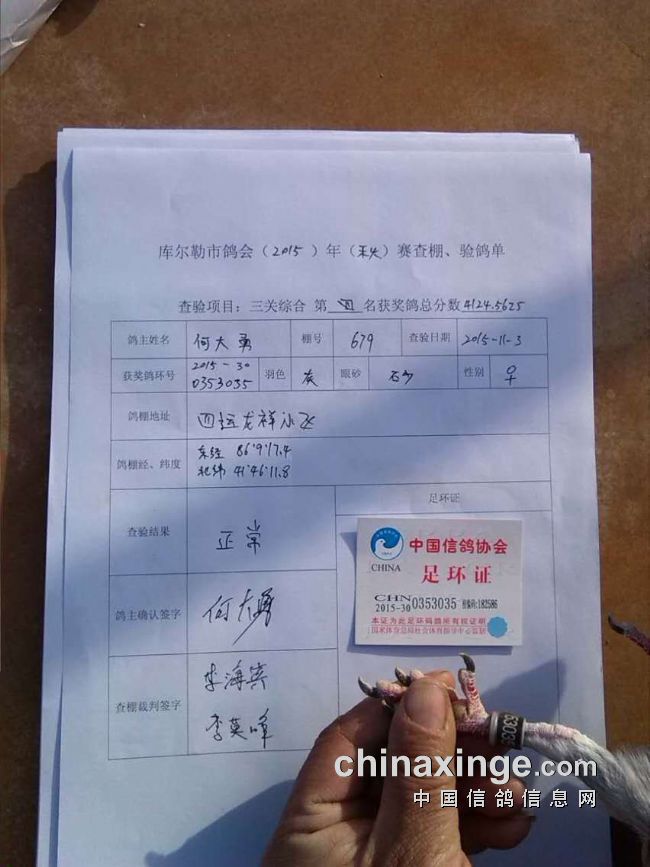 库尔勒市鸽会（2015）年（秋）赛查棚、验鸽单
查验项目：三关综合 第 四 名获奖鸽总分数4124.5625
鸽主姓名 何大勇 棚号 679 查验日期 2015-11-3
获奖鸽环号 2015-30 0353035 羽色 灰 眼砂 石沙 性别 ♀
鸽棚地址 四运龙祥小区
鸽棚经、纬度 东经 86°9'17.4
北纬 41°46'11.8
查验结果 正常
足环证
鸽主确认签字 何大勇
查棚裁判签字 李海宾
李英峰
中国信鸽协会
CHINA
足环证
CHN
2015-30 0353035 182586
本证为此足环鸽所有权证明
国家体育总局社会体育指导中心监制
chinaxinge.com
中国信鸽信息网